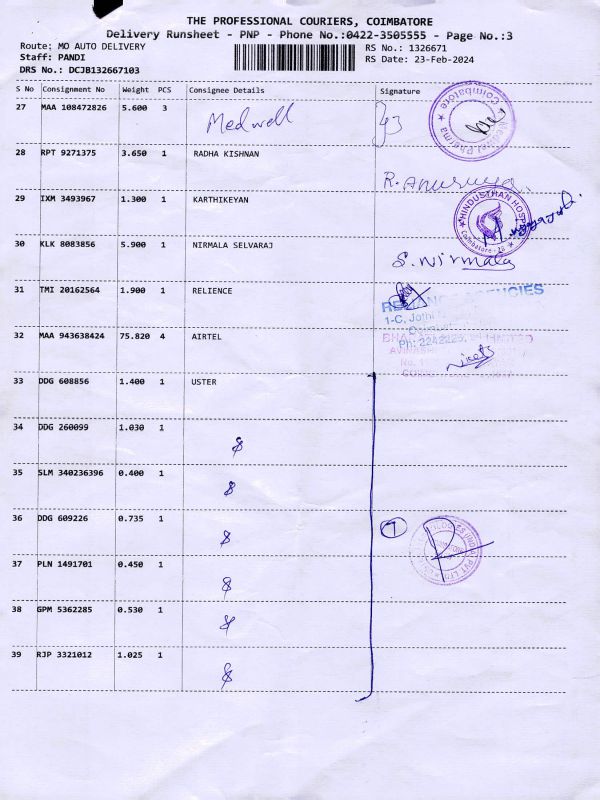 THE PROFESSIONAL COURIERS, COIMBATORE
Delivery Runsheet - PNP - Phone No.:0422-3505555 - Page No.:3
Route: MO AUTO DELIVERY RS No.: 1326671
Staff: PANDI RS Date: 23-Feb-2024
DRS No.: DCJB132667103
S No Consignment No Weight PCS Consignee Details Signature
27 MAA 108472826 5.600 3 Medwell
Medwel Pharma Coimbatore
28 RPT 9271375 3.650 1 RADHA KISHNAN R. Anusuya
29 IXM 3493967 1.300 1 KARTHIKEYAN
HINDUSTHAN HOSP Coimbatore - 28
30 KLK 8083856 5.900 1 NIRMALA SELVARAJ S. Nirmala
31 TMI 20162564 1.900 1 RELIENCE
AGENCIES
1-C,
32 MAA 943638424 75.820 4 AIRTEL
Ph: 2242225,
33 DDG 608856 1.400 1 USTER
34 DDG 260099 1.030 1
35 SLM 340236396 0.400 1
36 DDG 609226 0.735 1 7
37 PLN 1491701 0.450 1
38 GPM 5362285 0.530 1
39 RJP 3321012 1.025 1